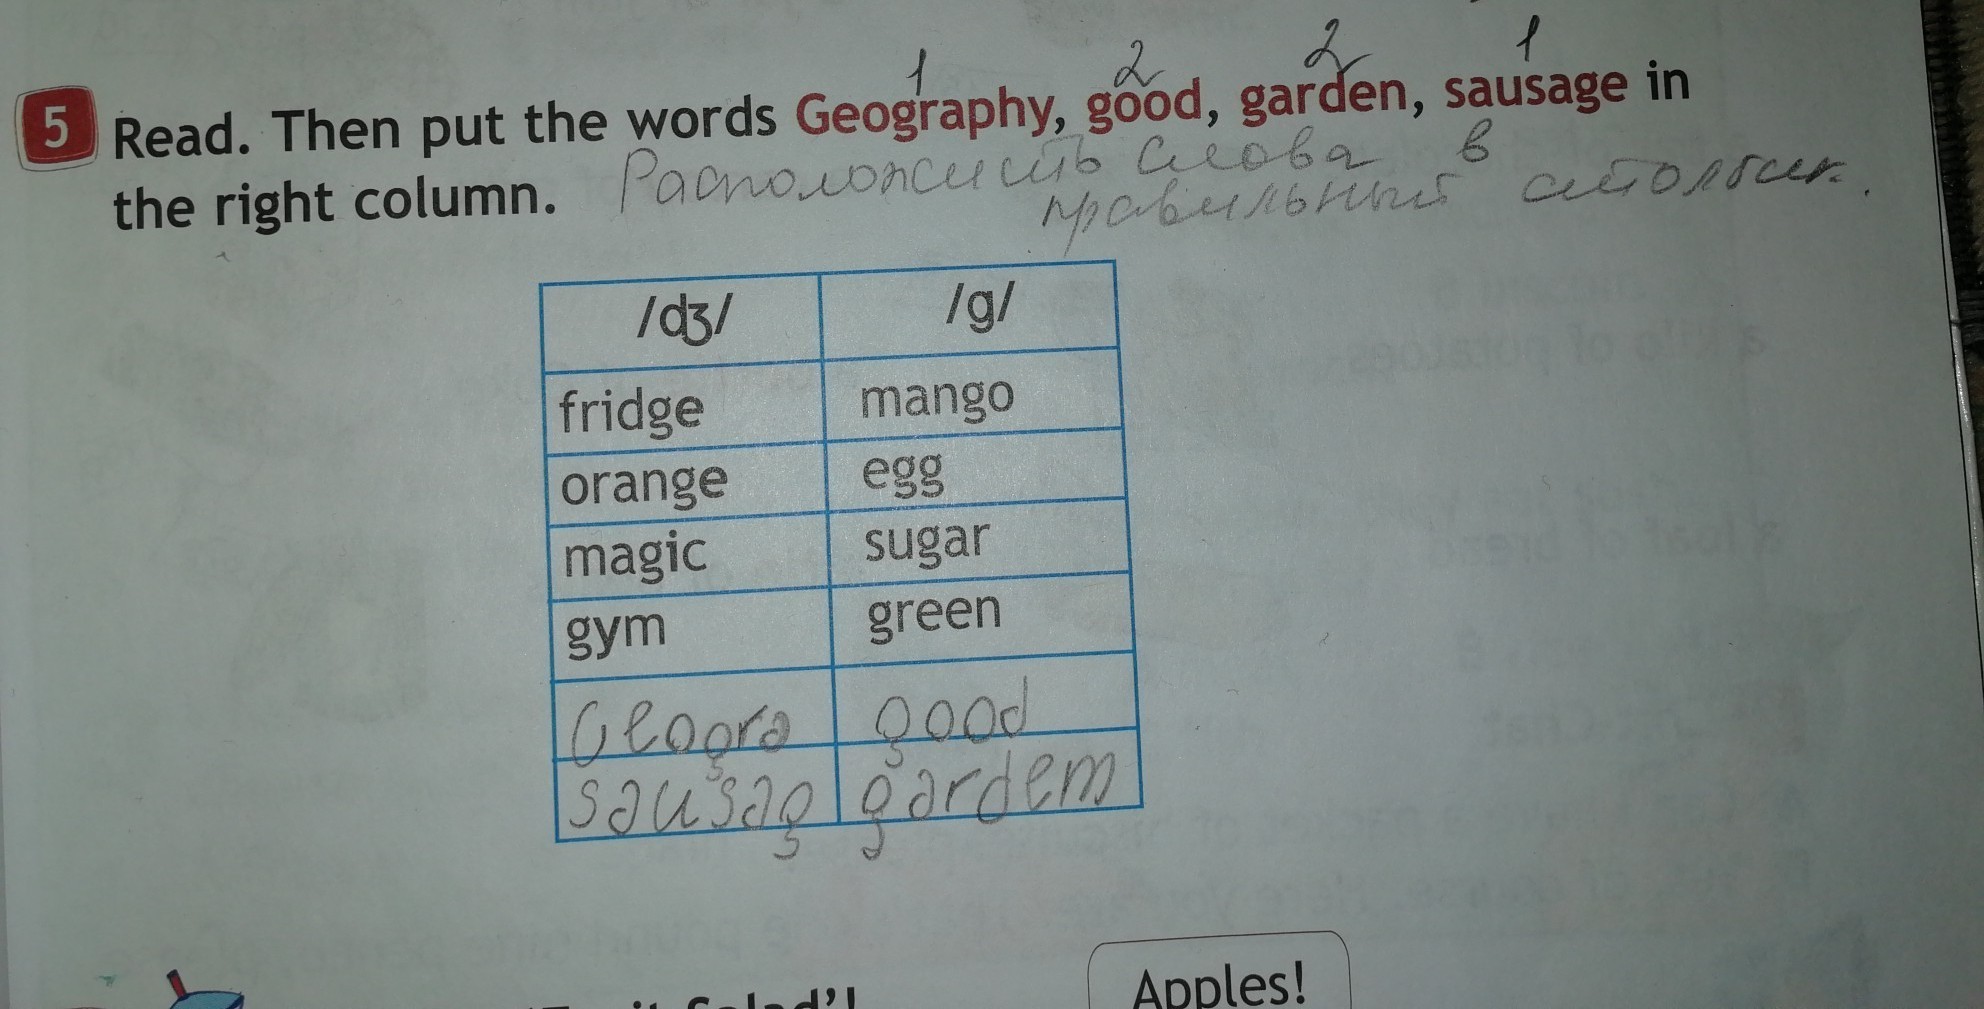 1 2 2 1
5 Read. Then put the words Geography, good, garden, sausage in
the right column. Расположить слова в
правильный столбик.
/dʒ/ /g/
fridge mango
orange egg
magic sugar
gym green
Geogra good
sausag gardem
Apples!